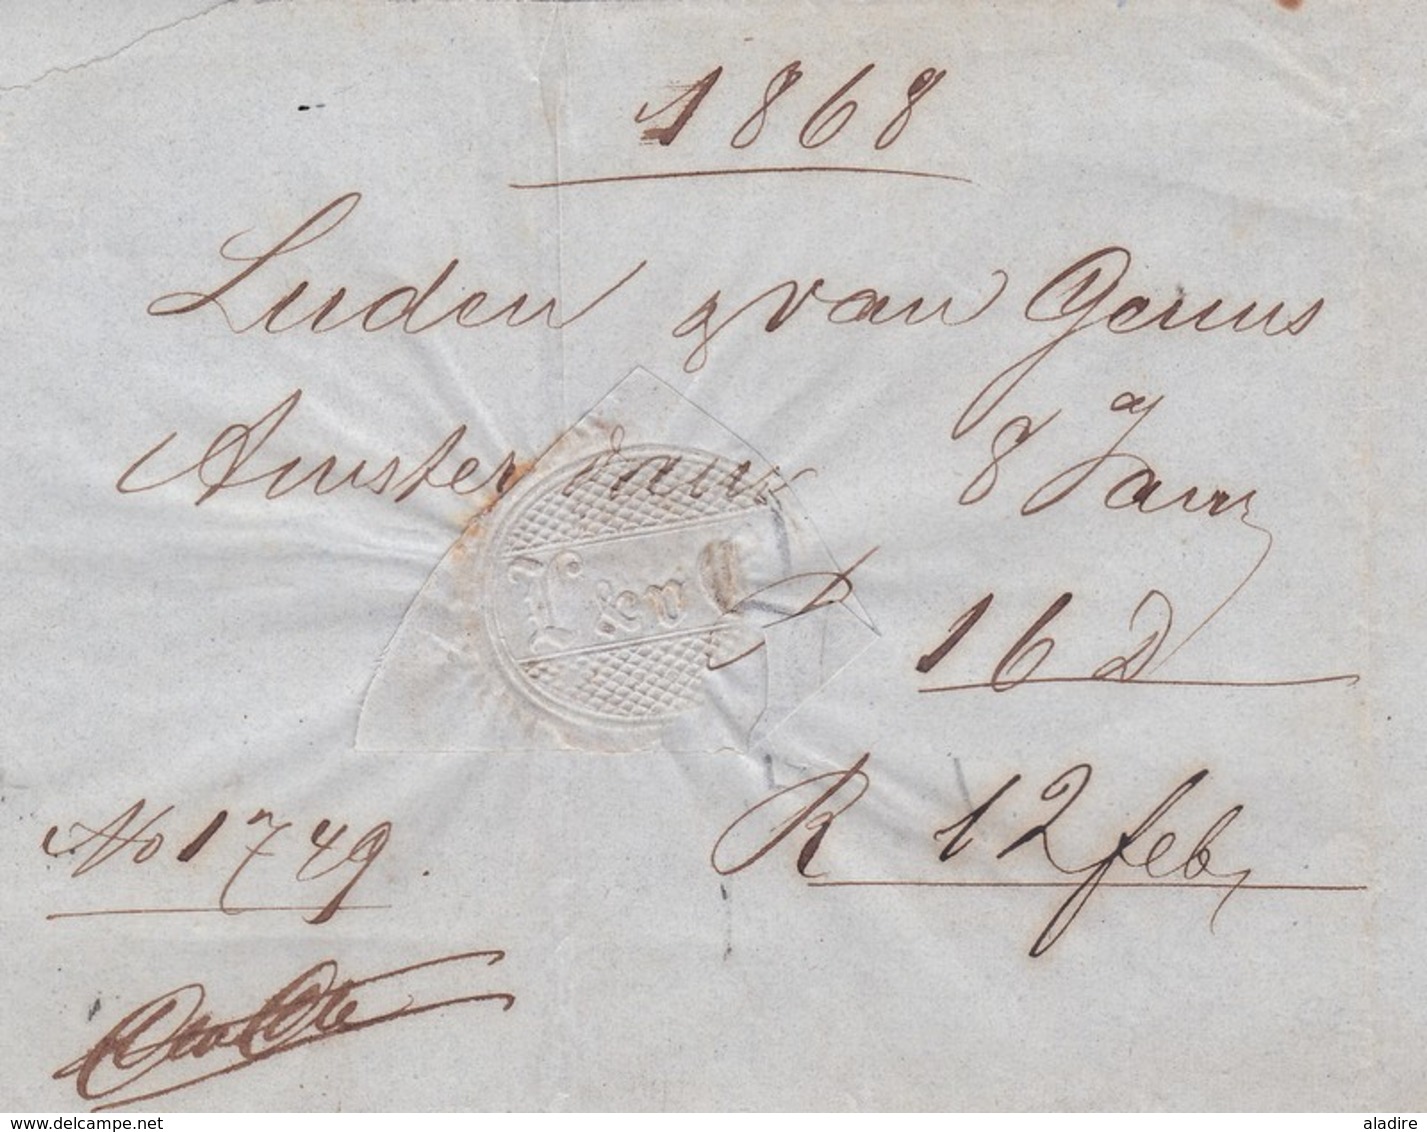 1868
Luden & van Geuns
Amsterdam 8 Jany
L & v G
R 16 D
R 12 feb,
No 1749.
www.delcampe.net
aladire